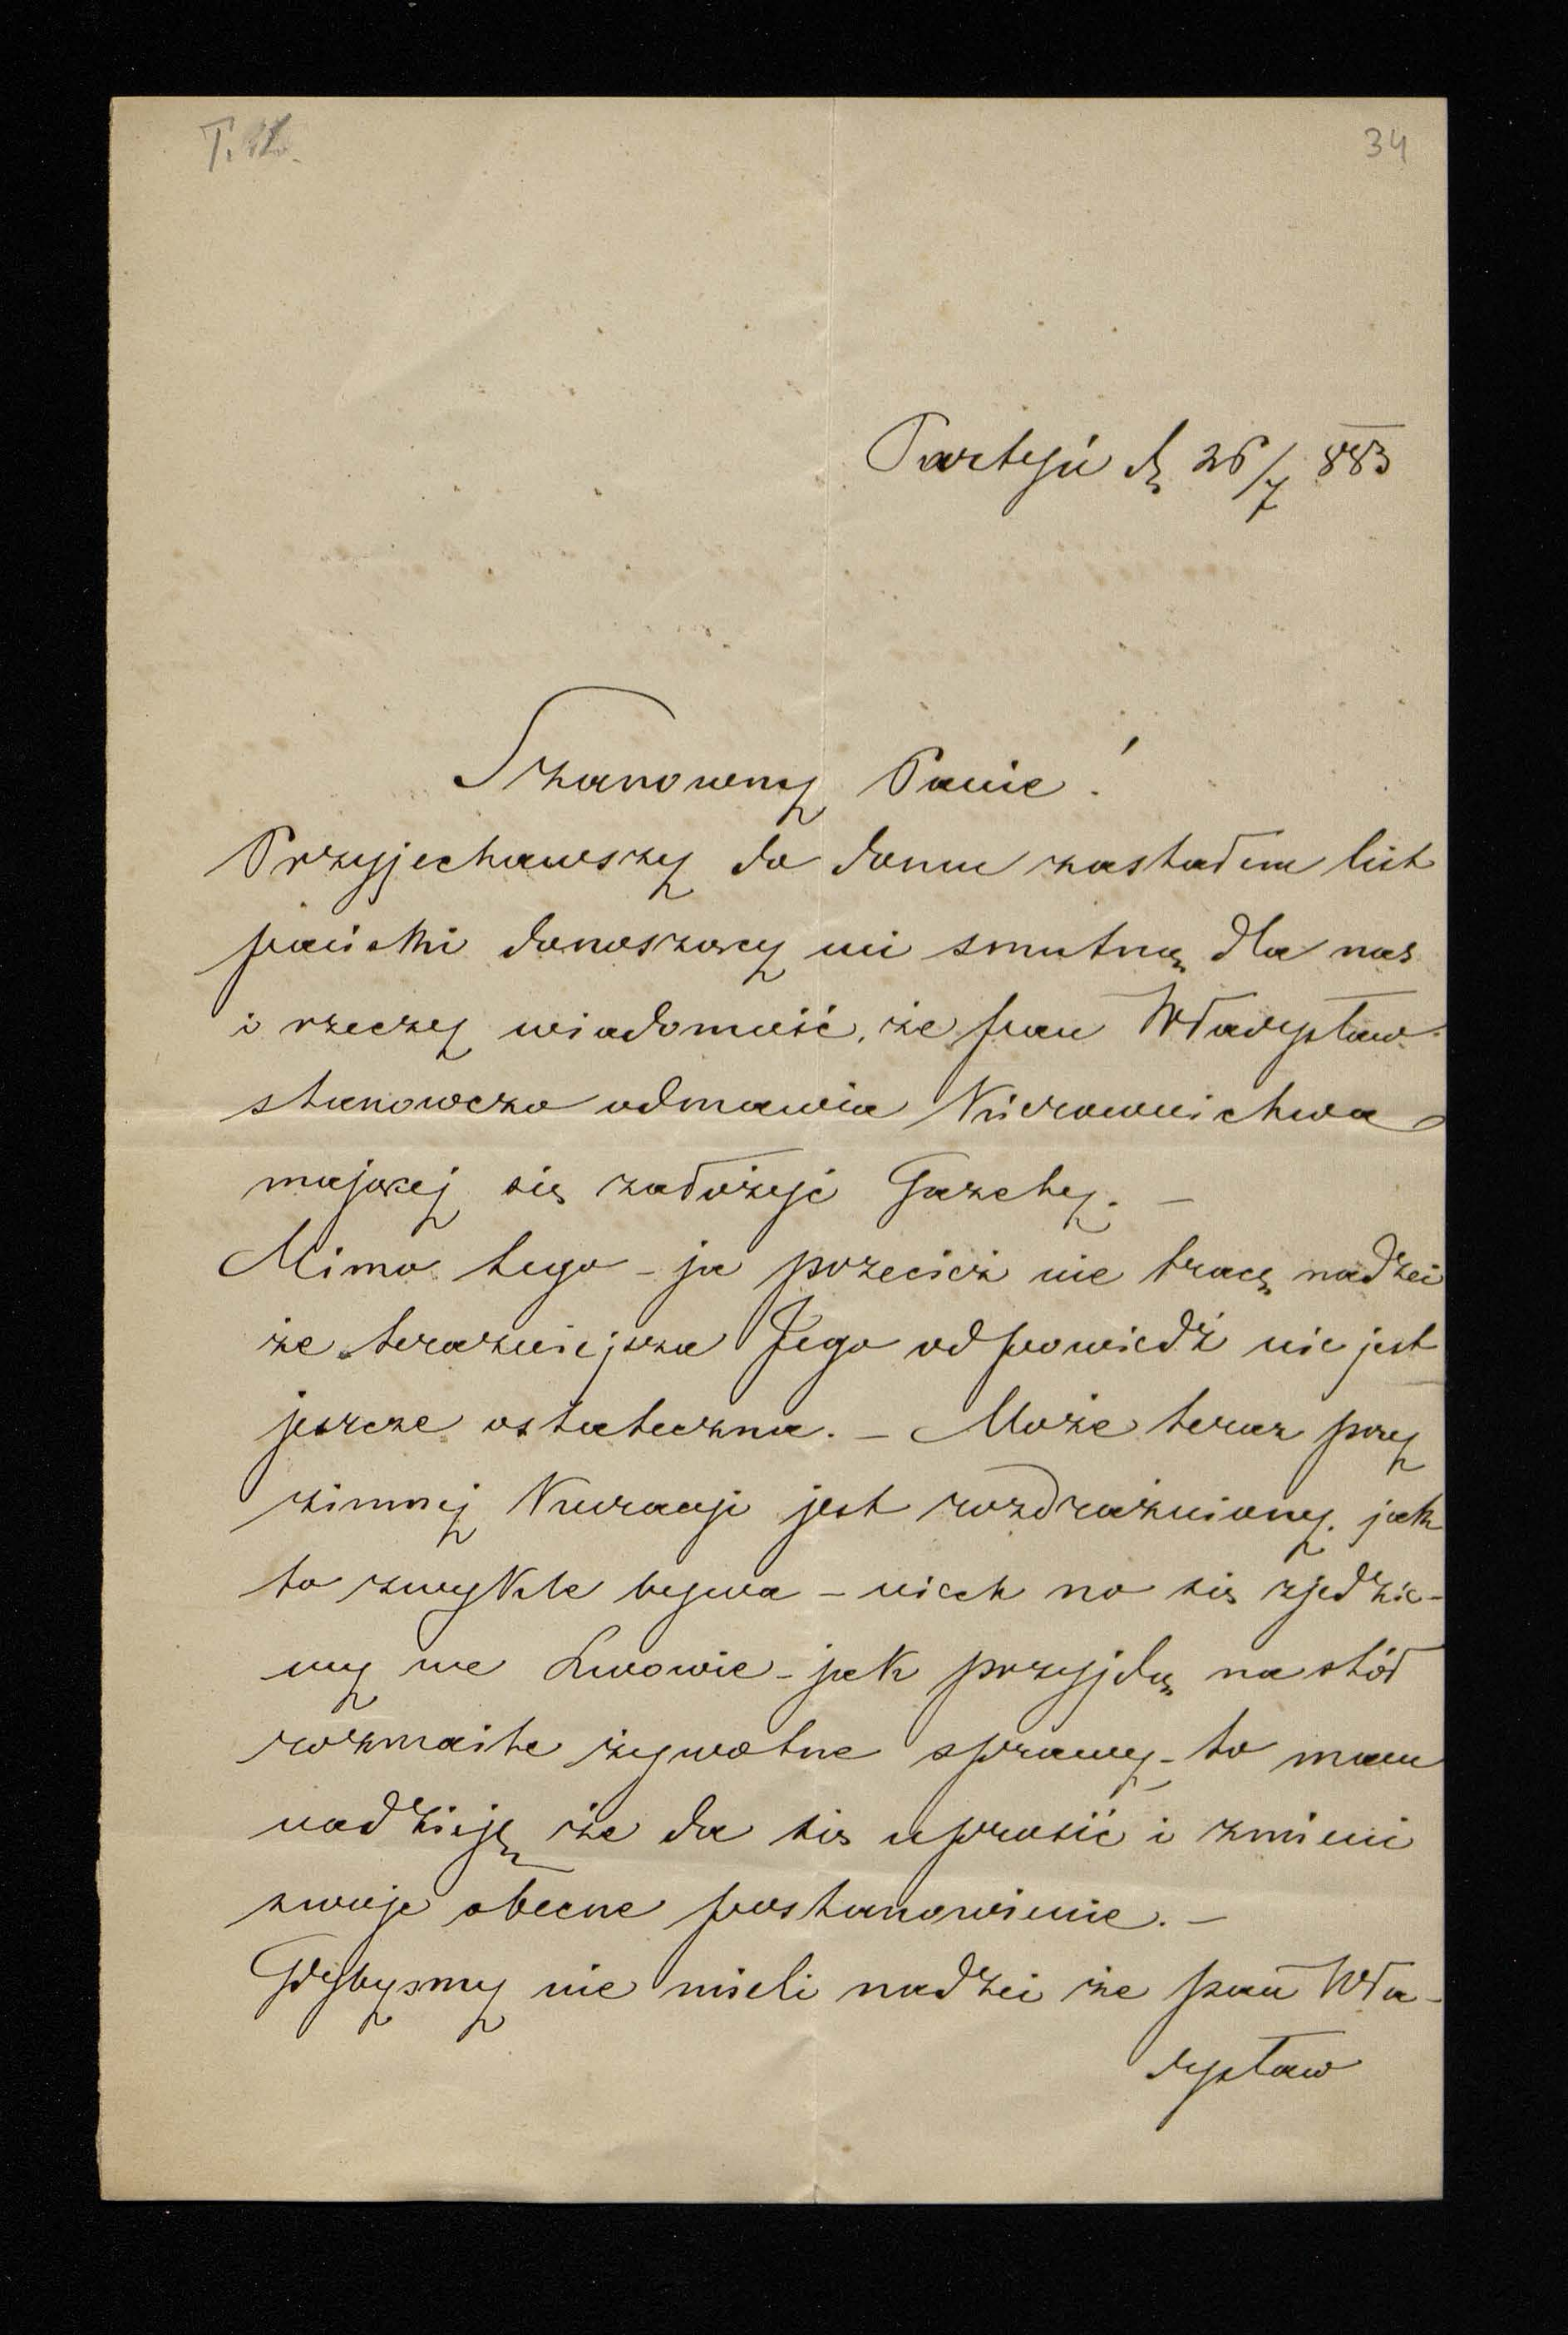 34
Partyń d. 26/7 883
Szanowny Panie!
Przyjechawszy do domu zastałem list
pański donoszący mi smutną dla nas
i rzeczy wiadomość, że pan Władysław
stanowczo odmawia Kierownictwa
mającej się założyć Gazety. –
Mimo tego – ja przecież nie tracę nadzei
że terazniejsza Jego odpowiedź nie jest
jeszcze ostateczna. – Może teraz przy
zimnej Kuracyi jest rozdrażniony. jak
to zwykle bywa – niech no się zjedzie-
my we Lwowie – jak przyjdą na stół
rozmaite żywotne sprawy – to mam
nadzieję że da się uprosić i zmieni
swoje obecne postanowienie. –
Gdybysmy nie mieli nadzei że pan Wła-
dysław